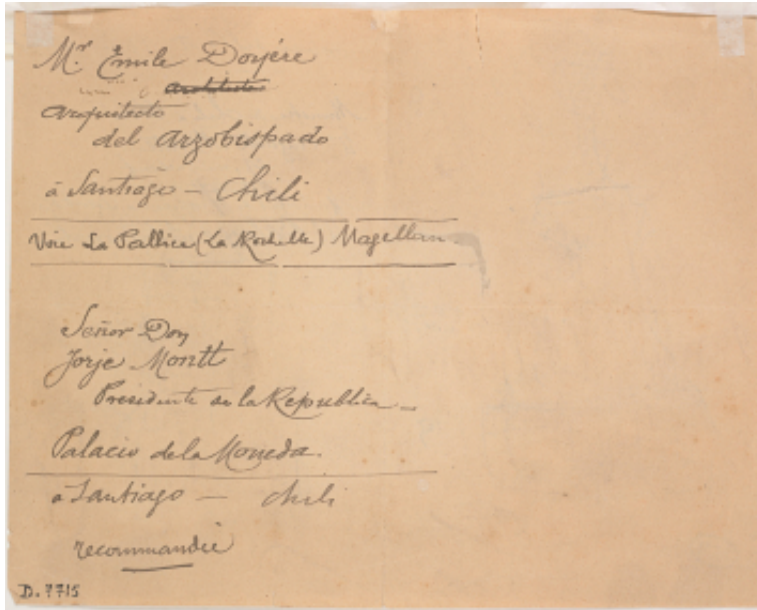 Mr Emile Doyére
Architecte
arquitecto
del arzobispado
à Santiago – Chili
Voie La Pallice (La Rochelle) Magellan
Señor Don
Jorje Montt
Presidente de la Republica –
Palacio de la Moneda.
à Santiago – Chili
recommandée
D. 7715